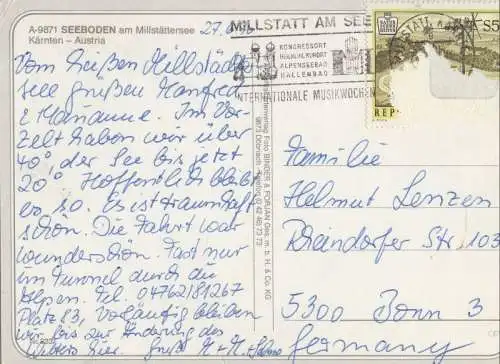 A-9871 SEEBODEN am Millstättersee
Kärnten – Austria
27.
Vom heißen Millstädter
see grüßen Manfred
& Marianne. Im Vor-
zelt haben wir über
40°, der See bis jetzt
20° Hoffentlich bleibt
es so. Es ist traumhaft
schön. Die Fahrt war
wunderschön. Fast nur
im Tunnel durch die
Alpen. Tel. 04762/81267
Platz 83, Vorläufig bleiben
wir bis zur Änderung des
Wetters hier. Gruß M + M
MILLSTATT AM SEE
KONGRESSORT
HEILKLIMAKURORT
ALPENSEEBAD
HALLENBAD
INTERNATIONALE MUSIKWOCHEN
S5
REP
Foto BINDER & FLORIAN Ges. m. b. H. & Co. KG
9873 Döbriach
Familie
Helmut Lenzen
Rheindorfer Str 103
5300 Bonn 3
Germany